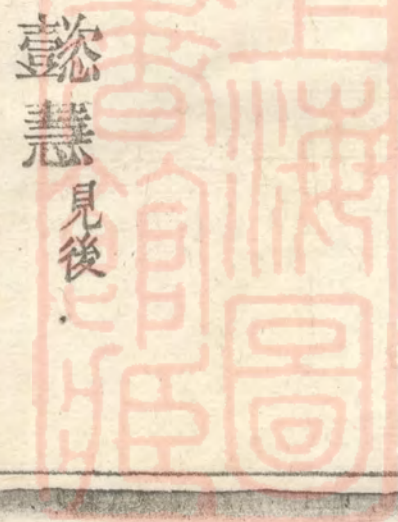 懿慧見後
上海圖
書館藏